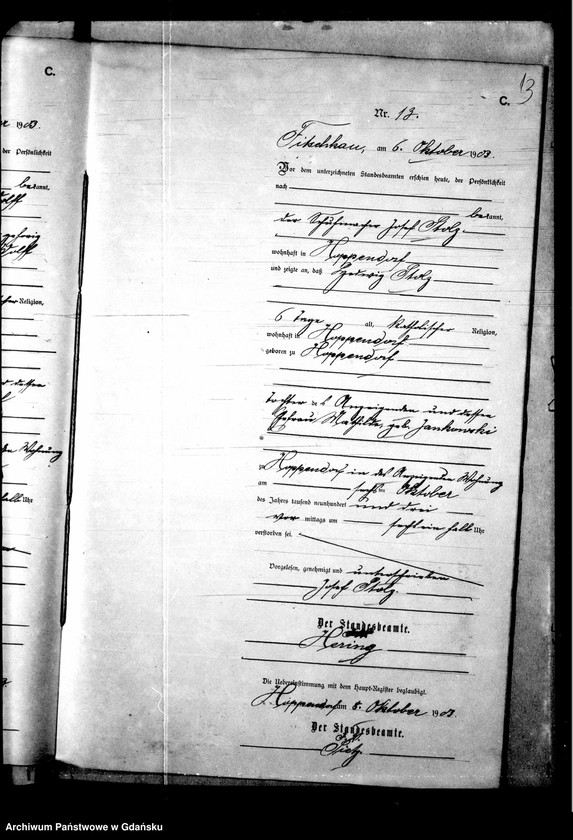 C.
13
C.
Nr. 13.
am 6. Oktober 1903.
Vor dem unterzeichneten Standesbeamten erschien heute, der Persönlichkeit
nach
bekannt,
der Schuhmacher Josef Stolz
wohnhaft in Hoppendorf
und zeigte an, daß Hedwig Stolz
6 Tage alt, katholischer Religion,
wohnhaft in Hoppendorf
geboren zu Hoppendorf
Tochter des Anzeigenden und dessen
Ehefrau Mathilde, geb. Jankowski
zu Hoppendorf in des Anzeigenden Wohnung
am sechsten Oktober
des Jahres tausend neunhundert und drei
vor mittags um sechs ein halb Uhr
verstorben sei.
Vorgelesen, genehmigt und unterschrieben
Josef Stolz
Der Standesbeamte.
Hering
Die Uebereinstimmung mit dem Haupt-Register beglaubigt.
Hoppendorf am 8. Oktober 1903.
Der Standesbeamte.
1903.
der Persönlichkeit
bekannt,
Religion,
Wohnung
halb Uhr
Archiwum Państwowe w Gdańsku